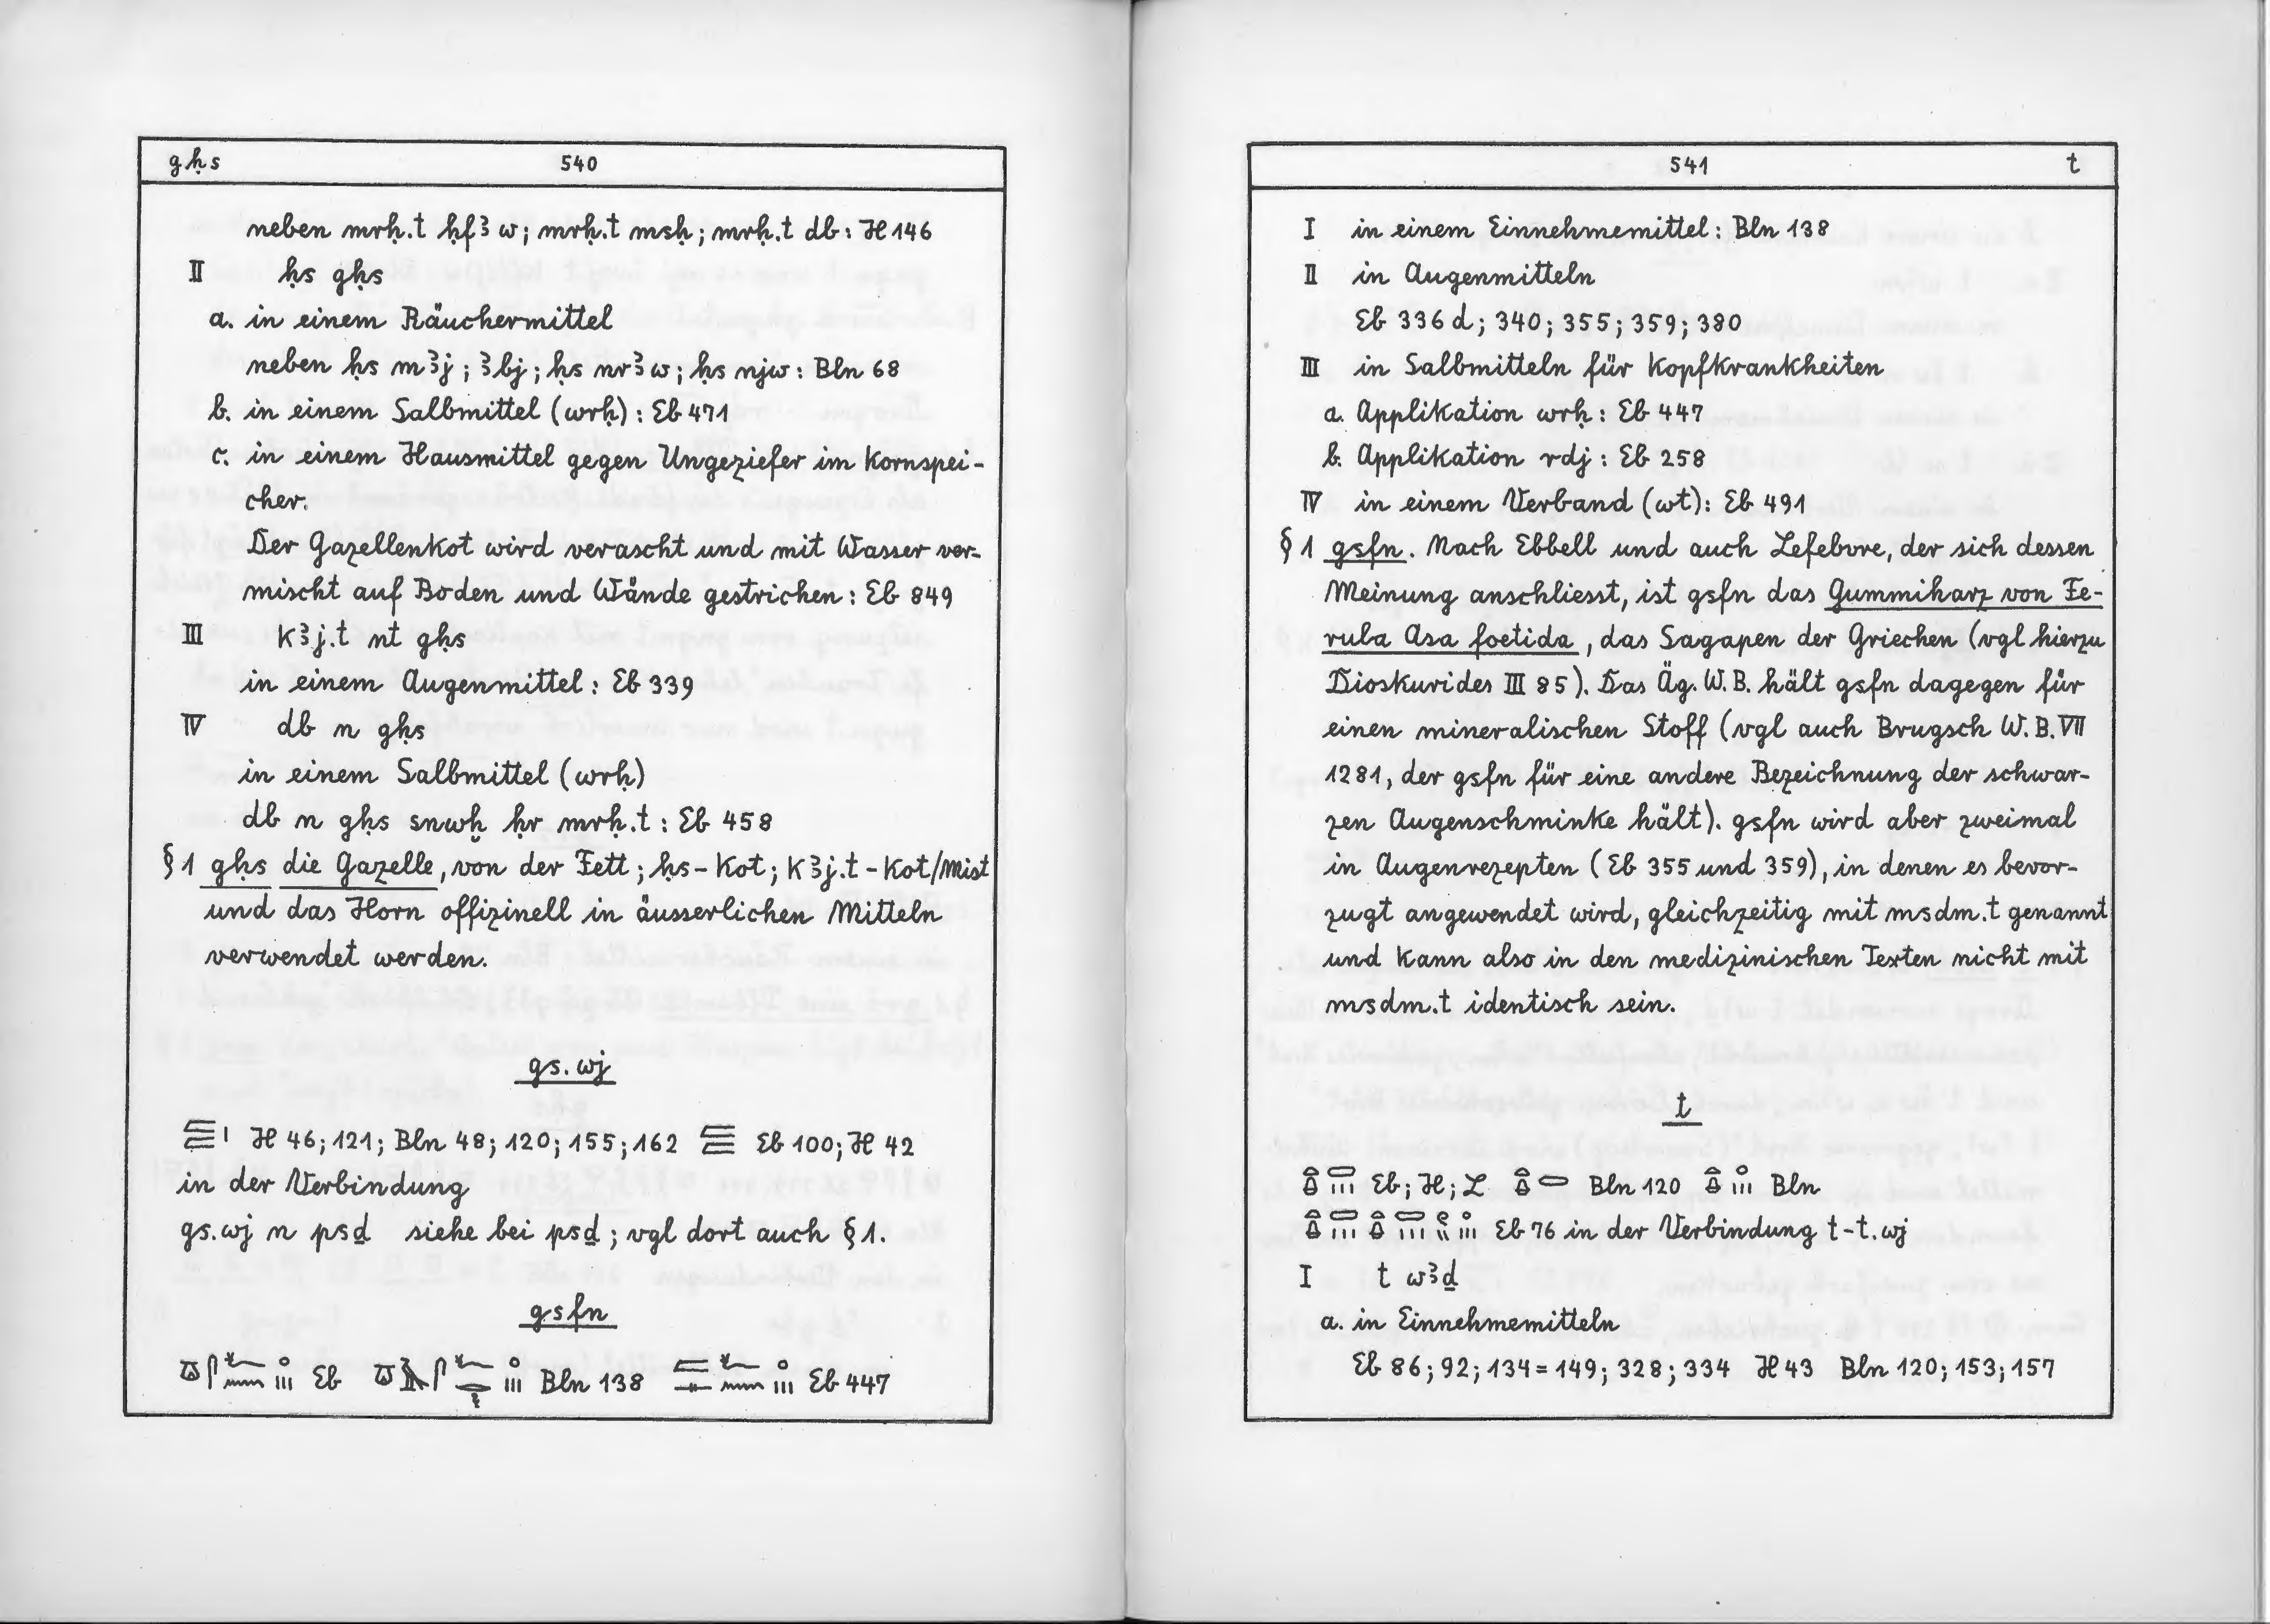 gḥs 540
neben mrḥ.t ḥfꜣw; mrḥ.t msḥ; mrḥ.t db: H 146
II ḥs gḥs
a. in einem Räuchermittel
neben ḥs mꜣj; ꜣbj; ḥs nrꜣw; ḥs njw: Bln 68
b. in einem Salbmittel (wrḥ): Eb 471
c. in einem Hausmittel gegen Ungeziefer im Kornspei-
cher.
Der Gazellenkot wird verascht und mit Wasser ver-
mischt auf Boden und Wände gestrichen: Eb 849
III kꜣj.t nt gḥs
in einem Augenmittel: Eb 339
IV db n gḥs
in einem Salbmittel (wrḥ)
db n gḥs snwḫ ḥr mrḥ.t: Eb 458
§ 1 gḥs die Gazelle, von der Fett; ḥs-Kot; kꜣj.t-Kot/Mist
und das Horn offizinell in äusserlichen Mitteln
verwendet werden.
gs.wj
H 46; 121; Bln 48; 120; 155; 162 Eb 100; H 42
in der Verbindung
gs.wj n psḏ siehe bei psḏ; vgl dort auch § 1.
gsfn
Eb Bln 138 Eb 447
541 t
I in einem Einnehmemittel: Bln 138
II in Augenmitteln
Eb 336 d; 340; 355; 359; 380
III in Salbmitteln für Kopfkrankheiten
a. Applikation wrḥ: Eb 447
b. Applikation rdj: Eb 258
IV in einem Verband (wt): Eb 491
§ 1 gsfn. Nach Ebbell und auch Lefebvre, der sich dessen
Meinung anschliesst, ist gsfn das Gummiharz von Fe-
rula Asa foetida, das Sagapen der Griechen (vgl hierzu
Dioskurides III 85). Das Äg. W.B. hält gsfn dagegen für
einen mineralischen Stoff (vgl auch Brugsch W.B. VII
1281, der gsfn für eine andere Bezeichnung der schwar-
zen Augenschminke hält). gsfn wird aber zweimal
in Augenrezepten (Eb 355 und 359), in denen es bevor-
zugt angewendet wird, gleichzeitig mit msdm.t genannt
und kann also in den medizinischen Texten nicht mit
msdm.t identisch sein.
t
Eb; H; L Bln 120 Bln
Eb 76 in der Verbindung t-t.wj
I t wꜣḏ
a. in Einnehmemitteln
Eb 86; 92; 134=149; 328; 334 H 43 Bln 120; 153; 157